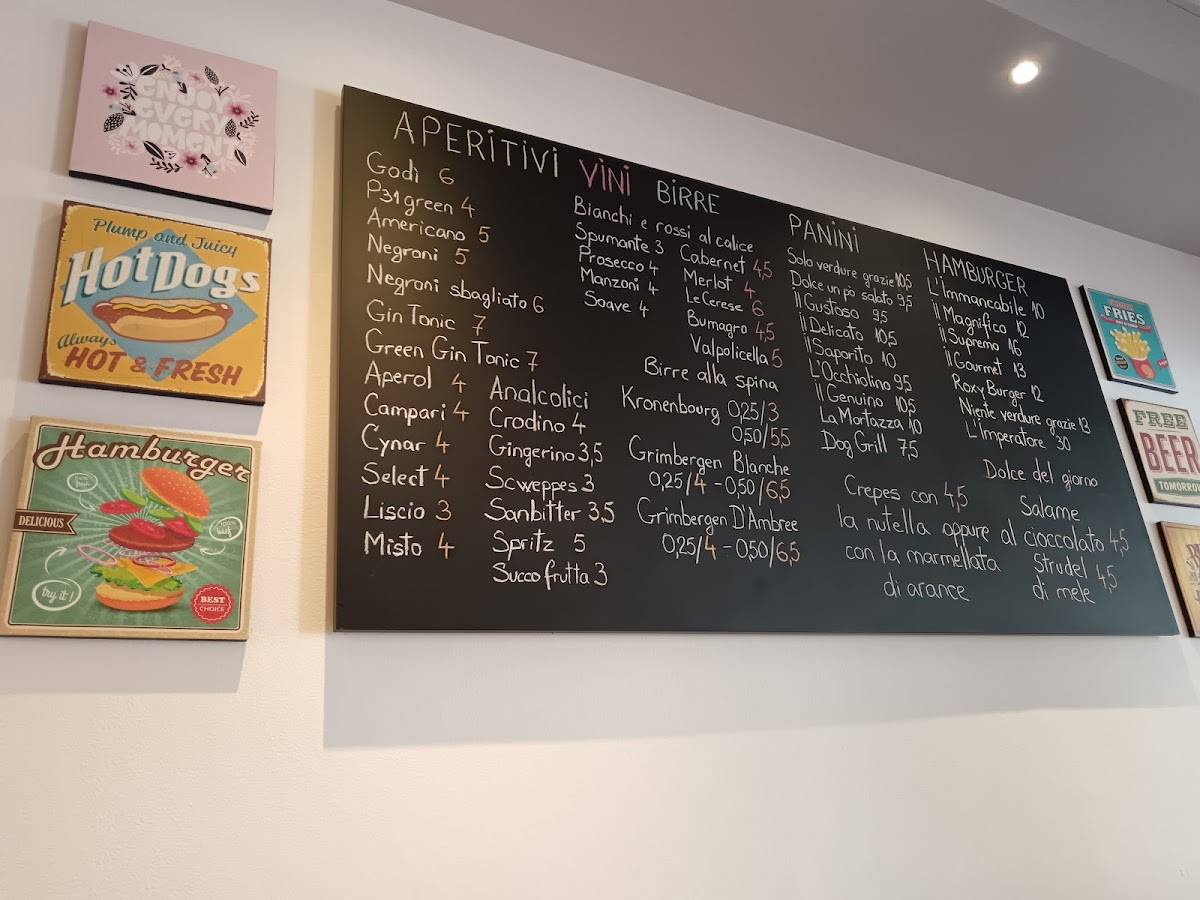 ENJOY
EVERY
MOMENT
Plump and Juicy
Hot Dogs
Always
HOT & FRESH
Hamburger
DELICIOUS
try it!
BEST
CHOICE
APERITIVI
Godì 6
P31 green 4
Americano 5
Negroni 5
Negroni sbagliato 6
Gin Tonic 7
Green Gin Tonic 7
Aperol 4
Campari 4
Cynar 4
Select 4
Liscio 3
Misto 4
Analcolici
Crodino 4
Gingerino 3,5
Scweppes 3
Sanbitter 3,5
Spritz 5
Succo frutta 3
VINI
BIRRE
Bianchi e rossi al calice
Spumante 3
Prosecco 4
Manzoni 4
Soave 4
Cabernet 4,5
Merlot 4
Le Cerese 6
Bumagro 4,5
Valpolicella 5
Birre alla spina
Kronenbourg 0,25/3
0,50/5,5
Grimbergen Blanche
0,25/4 - 0,50/6,5
Grimbergen D'Ambree
0,25/4 - 0,50/6,5
PANINI
Solo verdure grazie 10,5
Dolce un pò salato 9,5
Il Gustoso 9,5
il Delicato 10,5
il Saporito 10
L'Occhiolino 9,5
il Genuino 10,5
La Mortazza 10
Dog Grill 7,5
HAMBURGER
L'Immancabile 10
il Magnifico 12
il Supremo 16
il Gourmet 13
Roxy Burger 12
Niente verdure grazie 13
L'Imperatore 30
Dolce del giorno
Crepes con 4,5
la nutella oppure
con la marmellata
di arance
Salame
al cioccolato 4,5
Strudel 4,5
di mele
FRIES
FREE
BEER
TOMORROW